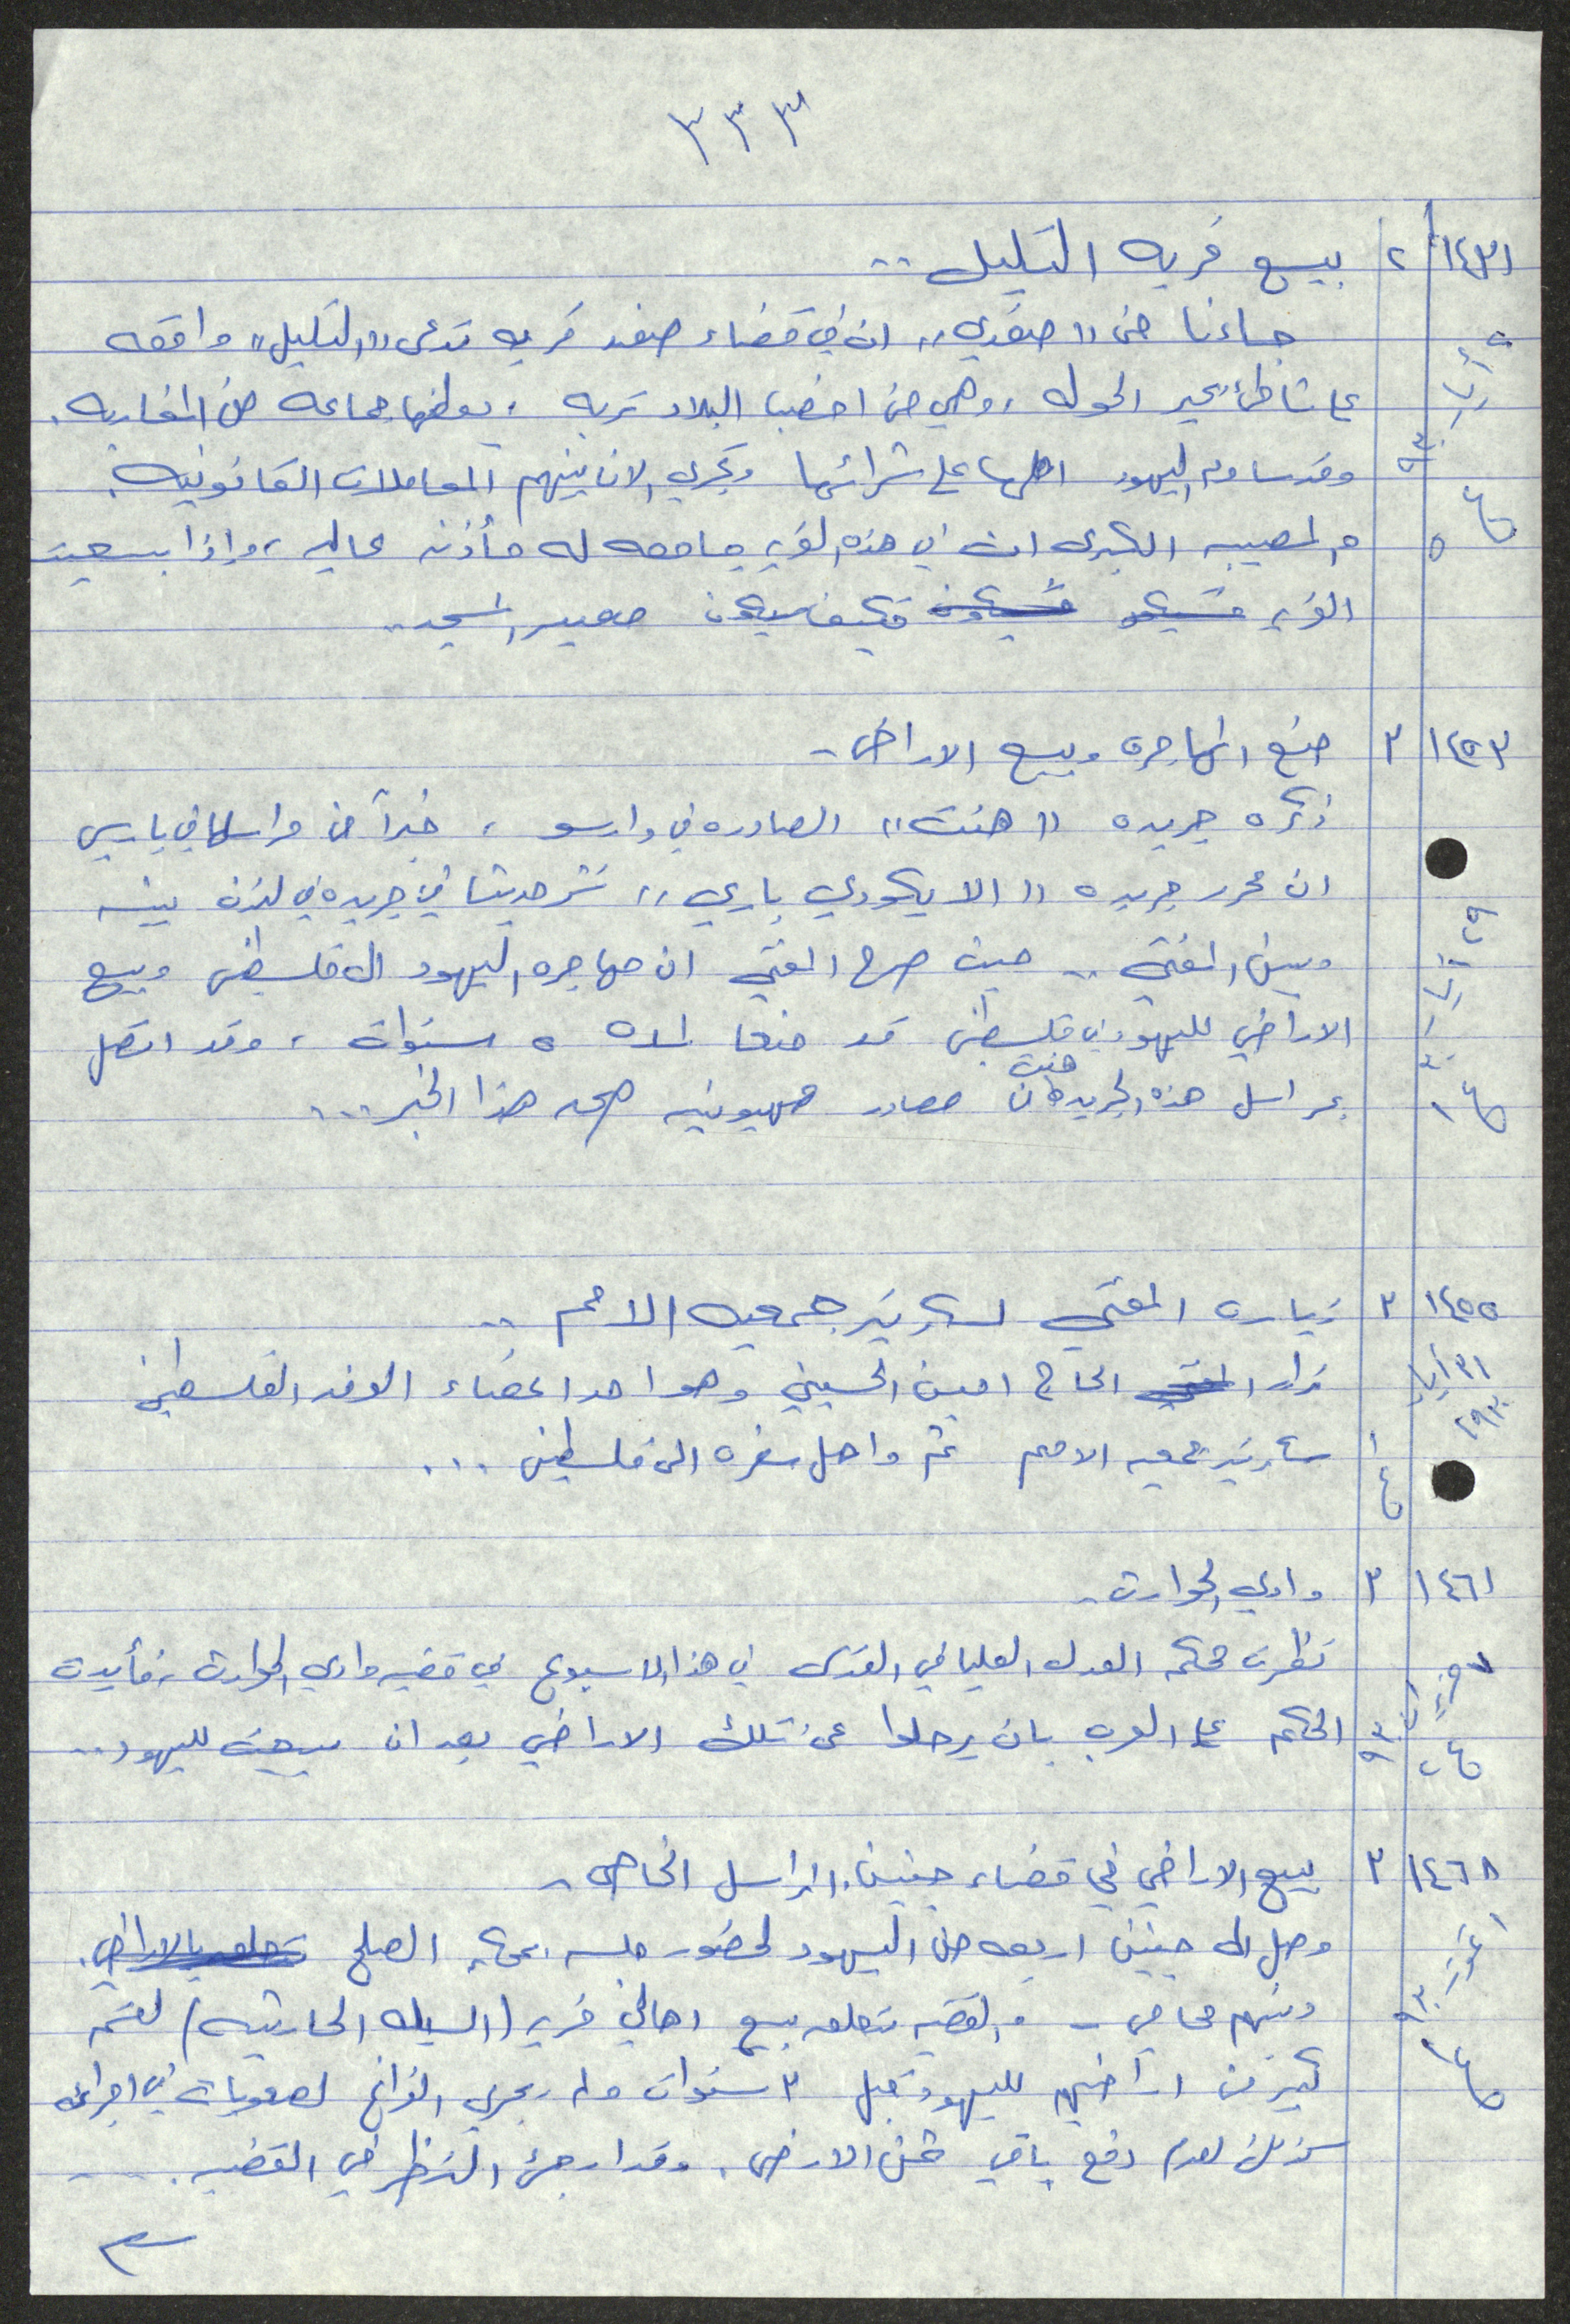 ٣٣٣
١٤٣١ ٢ بيع قريه التليل ..
جاءنا من "صفدي" ان في قضاء صفد قريه تدعى "التليل" واقعه
على شاطئ بحير الحوله ، وهي من اخصب البلاد تربه ، يقطنها جماعه من المغاربه .
وقد ساوم اليهود اهلها على شرائها وتجري الان بينهم المعاملات القانونيه .
والمصيبه الكبرى ان في هذه القريه جامعه له مأذنه عاليه ، واذا بيعت
القريه فكيف يكون مصير المسجد ..
١٤٥٣ ٣ منع المهاجره وبيع الاراضي ..
ذكره جريده "هنت" الصادره في وارسو ، خبراً من مراسلها في باريس
ان محرر جريده "الايكودي باري" نشر حديثا في جريده في لندن بينه
وبين المفتي .. حيث صرح المفتي ان مهاجره اليهود الى فلسطين وبيع
الاراضي لليهود في فلسطين قد منعا لمده ٥ سنوات ، وقد اتصل
بمراسل هذه الجريده هنت من مصادر صهيونيه صحه هذا الخبر ...
٢٩ ايار
١٤٥٥ ٣ زياره المفتي لسكرتير جمعيه الامم ..
زار المفتي الحاج امين الحسيني وهو احد اعضاء الوفد الفلسطيني
سكرتير جمعيه الامم ثم واصل سفره الى فلسطين ...
٣١ ايار
١٤٦١ ٣ وادي الحوارث ..
نظرت محكمه العدل العليا في القدس في هذا الاسبوع في قضيه وادي الحوارث ، فأيدت
الحكم على العرب بان يرحلوا عن تلك الاراضي بعد ان بيعت لليهود ..
١٤٦٨ ٣ بيع الاراضي في قضاء جنين. المراسل الخاص ..
وصل الى جنين اربعه من اليهود لحضور جلسه بمحكمه الصلح تتعلق بالاراضي .
وبينهم محامي - والقضيه تتعلق ببيع اهالي قريه (السيله الحارثيه) لقسم
كبير من اراضيهم لليهود قبل ٣ سنوات ولم يجري الفراغ لصعوبات في اجرائه
كذلك لعدم دفع باقي ثمن الارض . وقد ارجئ النظر في القضيه ...